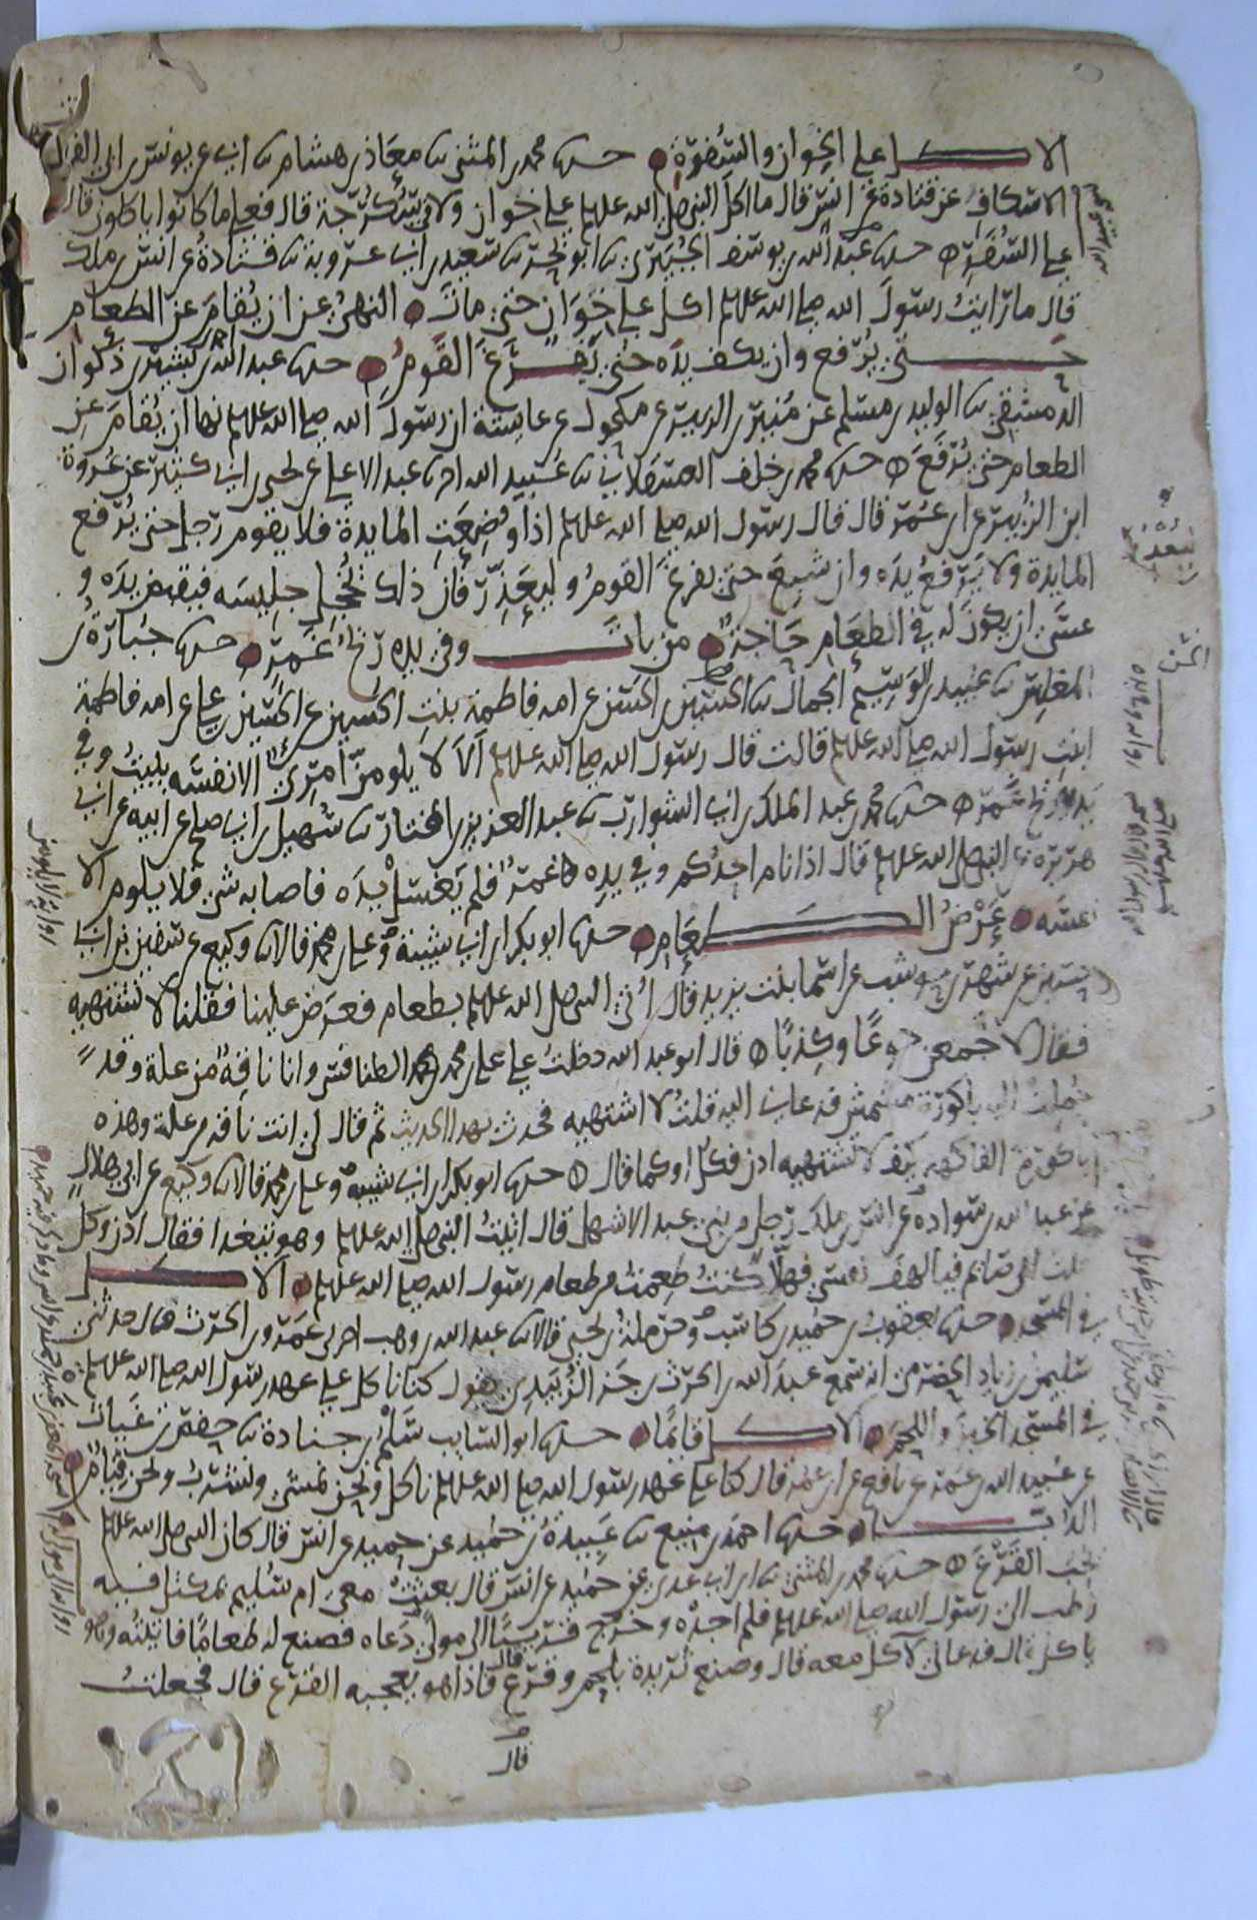 الاكل على الخوان والسفرة حدثنا محمد بن المثنى نا معاذ بن هشام نا ابي عن يونس بن ابي الفرات
الاسكاف عن قتادة عن انس قال ما اكل النبي صلى الله عليه وسلم على خوان ولا في سكرجة قال فعلى ما كانوا ياكلون قال
على السفر حدثنا عبيد الله بن يوسف الجبيري نا ابو بحر نا سعيد بن ابي عروبة نا قتادة عن انس بن ملك
قال ما رايت رسول الله صلى الله عليه وسلم اكل على خوان حتى مات النهي عن ان يقام عن الطعام
حتى يرفع وان يكف يده حتى يفرغ القوم حدثنا عبد الله بن احمد بن بشير بن ذكوان
الدمشقي نا الوليد بن مسلم عن منير بن الزبير عن مكحول عن عائشة ان رسول الله صلى الله عليه وسلم نها ان يقام عن
الطعام حتى يرفع حدثنا محمد بن خلف العسقلاني نا عبيد الله نا عبد الاعلى عن يحيى بن ابي كثير عن عروة
ابن الزبير عن ابن عمر قال قال رسول الله صلى الله عليه وسلم اذا وضعت المايدة فلا يقوم رجل حتى ترفع
المايدة ولا يرفع يده وان شبع حتى يفرغ القوم وليعذر فان ذلك يخجل جليسه فيقبض يده و
عسى ان يكون له في الطعام حاجة من بات وفي يده ريح غمر حدثنا جبارة بن
المغلس نا عبيد بن الوسيم الجمال نا الحسن بن الحسن عن امه فاطمة بنت الحسين عن الحسين بن علي عن امه فاطمة
ابنت رسول الله صلى الله عليه وسلم قالت قال رسول الله صلى الله عليه وسلم الا لا يلومن امرئ الا نفسه يبيت وفي
يده ريح غمر حدثنا محمد بن عبد الملك بن ابي الشوارب نا عبد العزيز بن المختار نا سهيل بن ابي صلح عن ابيه عن ابي
هريرة عن النبي صلى الله عليه وسلم قال اذا نام احدكم وفي يده غمر فلم يغسل يده فاصابه شي فلا يلومن الا
نفسه عرض الطعام حدثنا ابو بكر بن ابي شيبة وعلي بن محمد قالا نا وكيع عن سفين عن ابن ابي
حسين عن شهر بن حوشب عن اسما بنت يزيد قال اتي النبي صلى الله عليه وسلم بطعام فعرض علينا فقلنا لا نشتهيه
فقال لا تجمعن جوعا وكذبا قال ابو عبد الله دخلت على علي بن محمد الطنافسي وانا ناقه من علة وقد
حملت اليه باكورة مشمش فدعاني اليه قلت لا اشتهيه فحدث بهذا الحديث ثم قال لي انت ناقه من علة وهذه
باكورة الفاكهة كيف لا تشتهيه ادن فكل او كما قال حدثنا ابو بكر بن ابي شيبة وعلي بن محمد قالا نا وكيع عن ابي هلال
عن عبد الله بن سوادة عن انس بن ملك رجل من بني عبد الاشهل قال اتيت النبي صلى الله عليه وسلم وهو يتغدا فقال ادن وكل
قلت اني صائم فيا لهف نفسي فهلا كنت طعمت من طعام رسول الله صلى الله عليه وسلم الاكل
في المسجد حدثنا يعقوب بن حميد بن كاسب وحرملة بن يحيى قالا نا عبد الله بن وهب اخبرني عمرو بن الحرث قال حدثني
سليمن بن زياد الحضرمي انه سمع عبد الله بن الحرث بن جزء الزبيدي يقول كنا ناكل على عهد رسول الله صلى الله عليه وسلم
في المسجد الخبز واللحم الاكل قايما حدثنا ابو السايب سلم بن جنادة نا حفص بن غياث
عن عبيد الله بن عمر عن نافع عن ابن عمر قال كنا على عهد رسول الله صلى الله عليه وسلم ناكل ونحن نمشي ونشرب ونحن قيام
الدبا حدثنا احمد بن منيع نا عبيدة بن حميد عن حميد عن انس قال كان النبي صلى الله عليه وسلم
يحب القرع حدثنا محمد بن المثنى نا ابن ابي عدي عن حميد عن انس قال بعثت معي ام سليم بمكتل فيه
رطب الى رسول الله صلى الله عليه وسلم فلم اجده وخرج قريبا الى مولى له دعاه فصنع له طعاما فاتيته وهو
ياكل قال فدعاني لآكل معه قال وصنع ثريدة بلحم وقرع قال فاذا هو يعجبه القرع قال فجعلت
قال